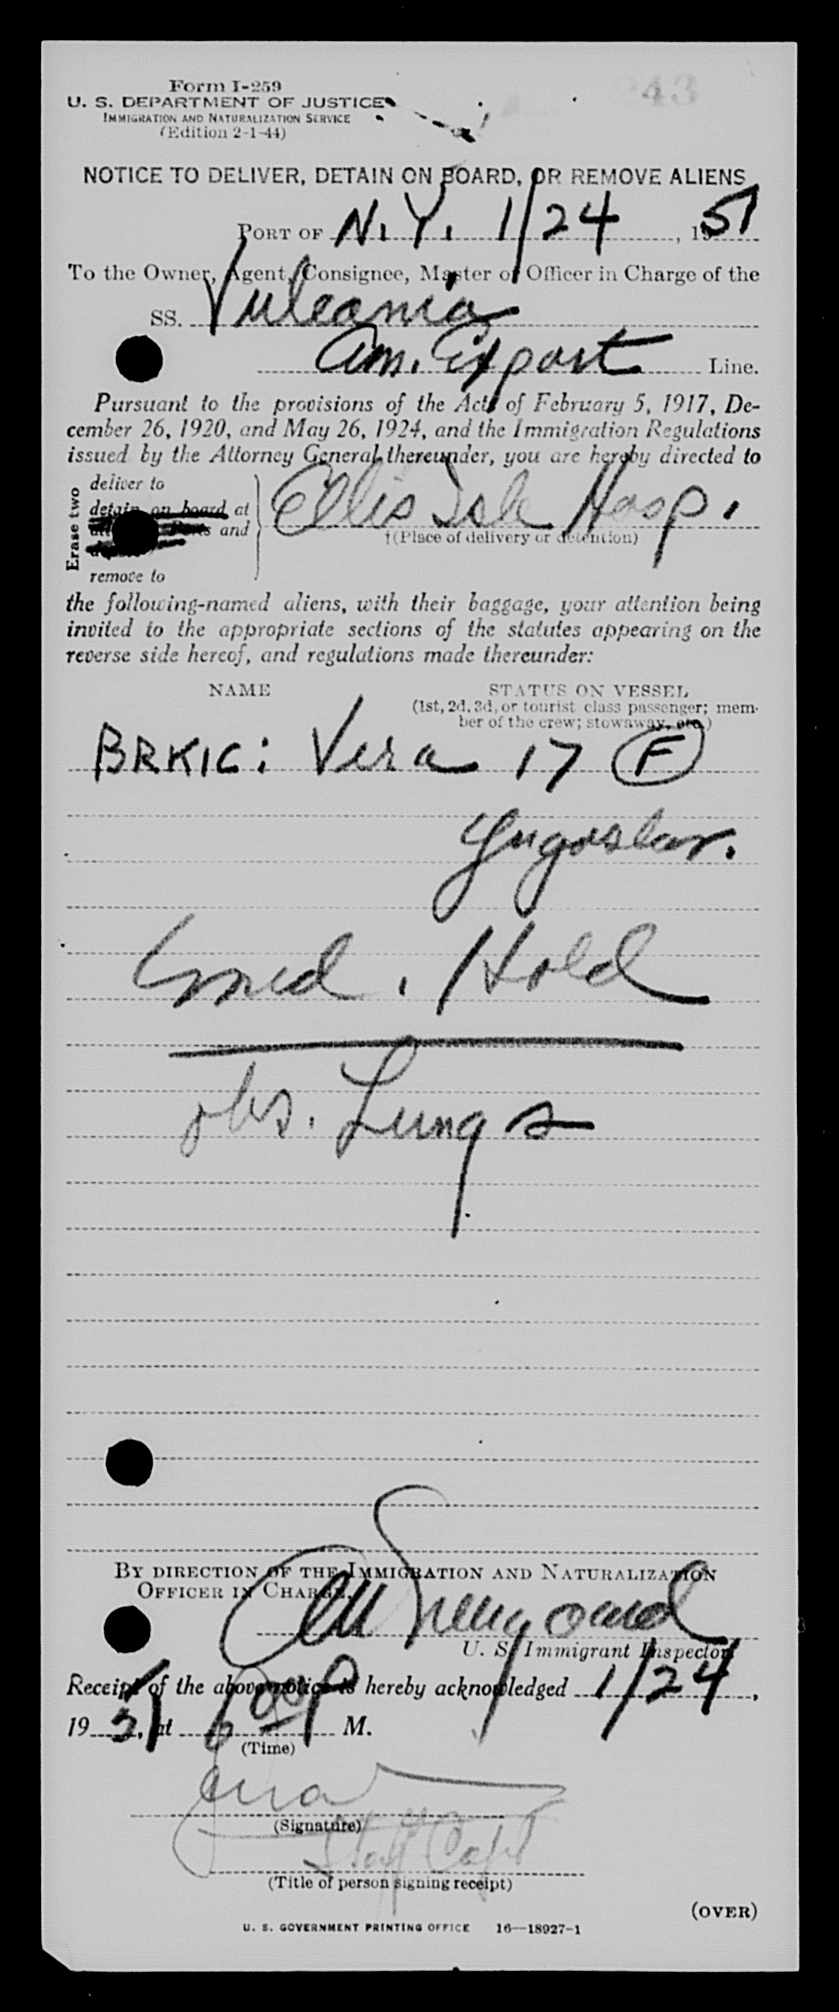 243
Form I-259
U. S. DEPARTMENT OF JUSTICE
IMMIGRATION AND NATURALIZATION SERVICE
(Edition 2-1-44)
NOTICE TO DELIVER, DETAIN ON BOARD, OR REMOVE ALIENS
PORT OF N.Y. 1/24, 1951
To the Owner, Agent, Consignee, Master or Officer in Charge of the
SS. Vulcania
Am. Export Line.
Pursuant to the provisions of the Acts of February 5, 1917, De-
cember 26, 1920, and May 26, 1924, and the Immigration Regulations
issued by the Attorney General thereunder, you are hereby directed to
Erase two
deliver to
detain on board at
and
remove to
Ellis Isle Hosp.
†(Place of delivery or detention)
the following-named aliens, with their baggage, your attention being
invited to the appropriate sections of the statutes appearing on the
reverse side hereof, and regulations made thereunder:
NAME STATUS ON VESSEL
(1st, 2d, 3d, or tourist class passenger; mem-
ber of the crew; stowaway, etc.)
BRKIC: Vera 17 F
Yugoslav.
Med. Hold
obs. Lungs
BY DIRECTION OF THE IMMIGRATION AND NATURALIZATION
OFFICER IN CHARGE,
U. S. Immigrant Inspector
Receipt of the above notice is hereby acknowledged 1/24,
1951, at 6 00 P M.
(Time)
(Signature)
Staff Capt
(Title of person signing receipt)
(OVER)
U. S. GOVERNMENT PRINTING OFFICE 16—18927-1